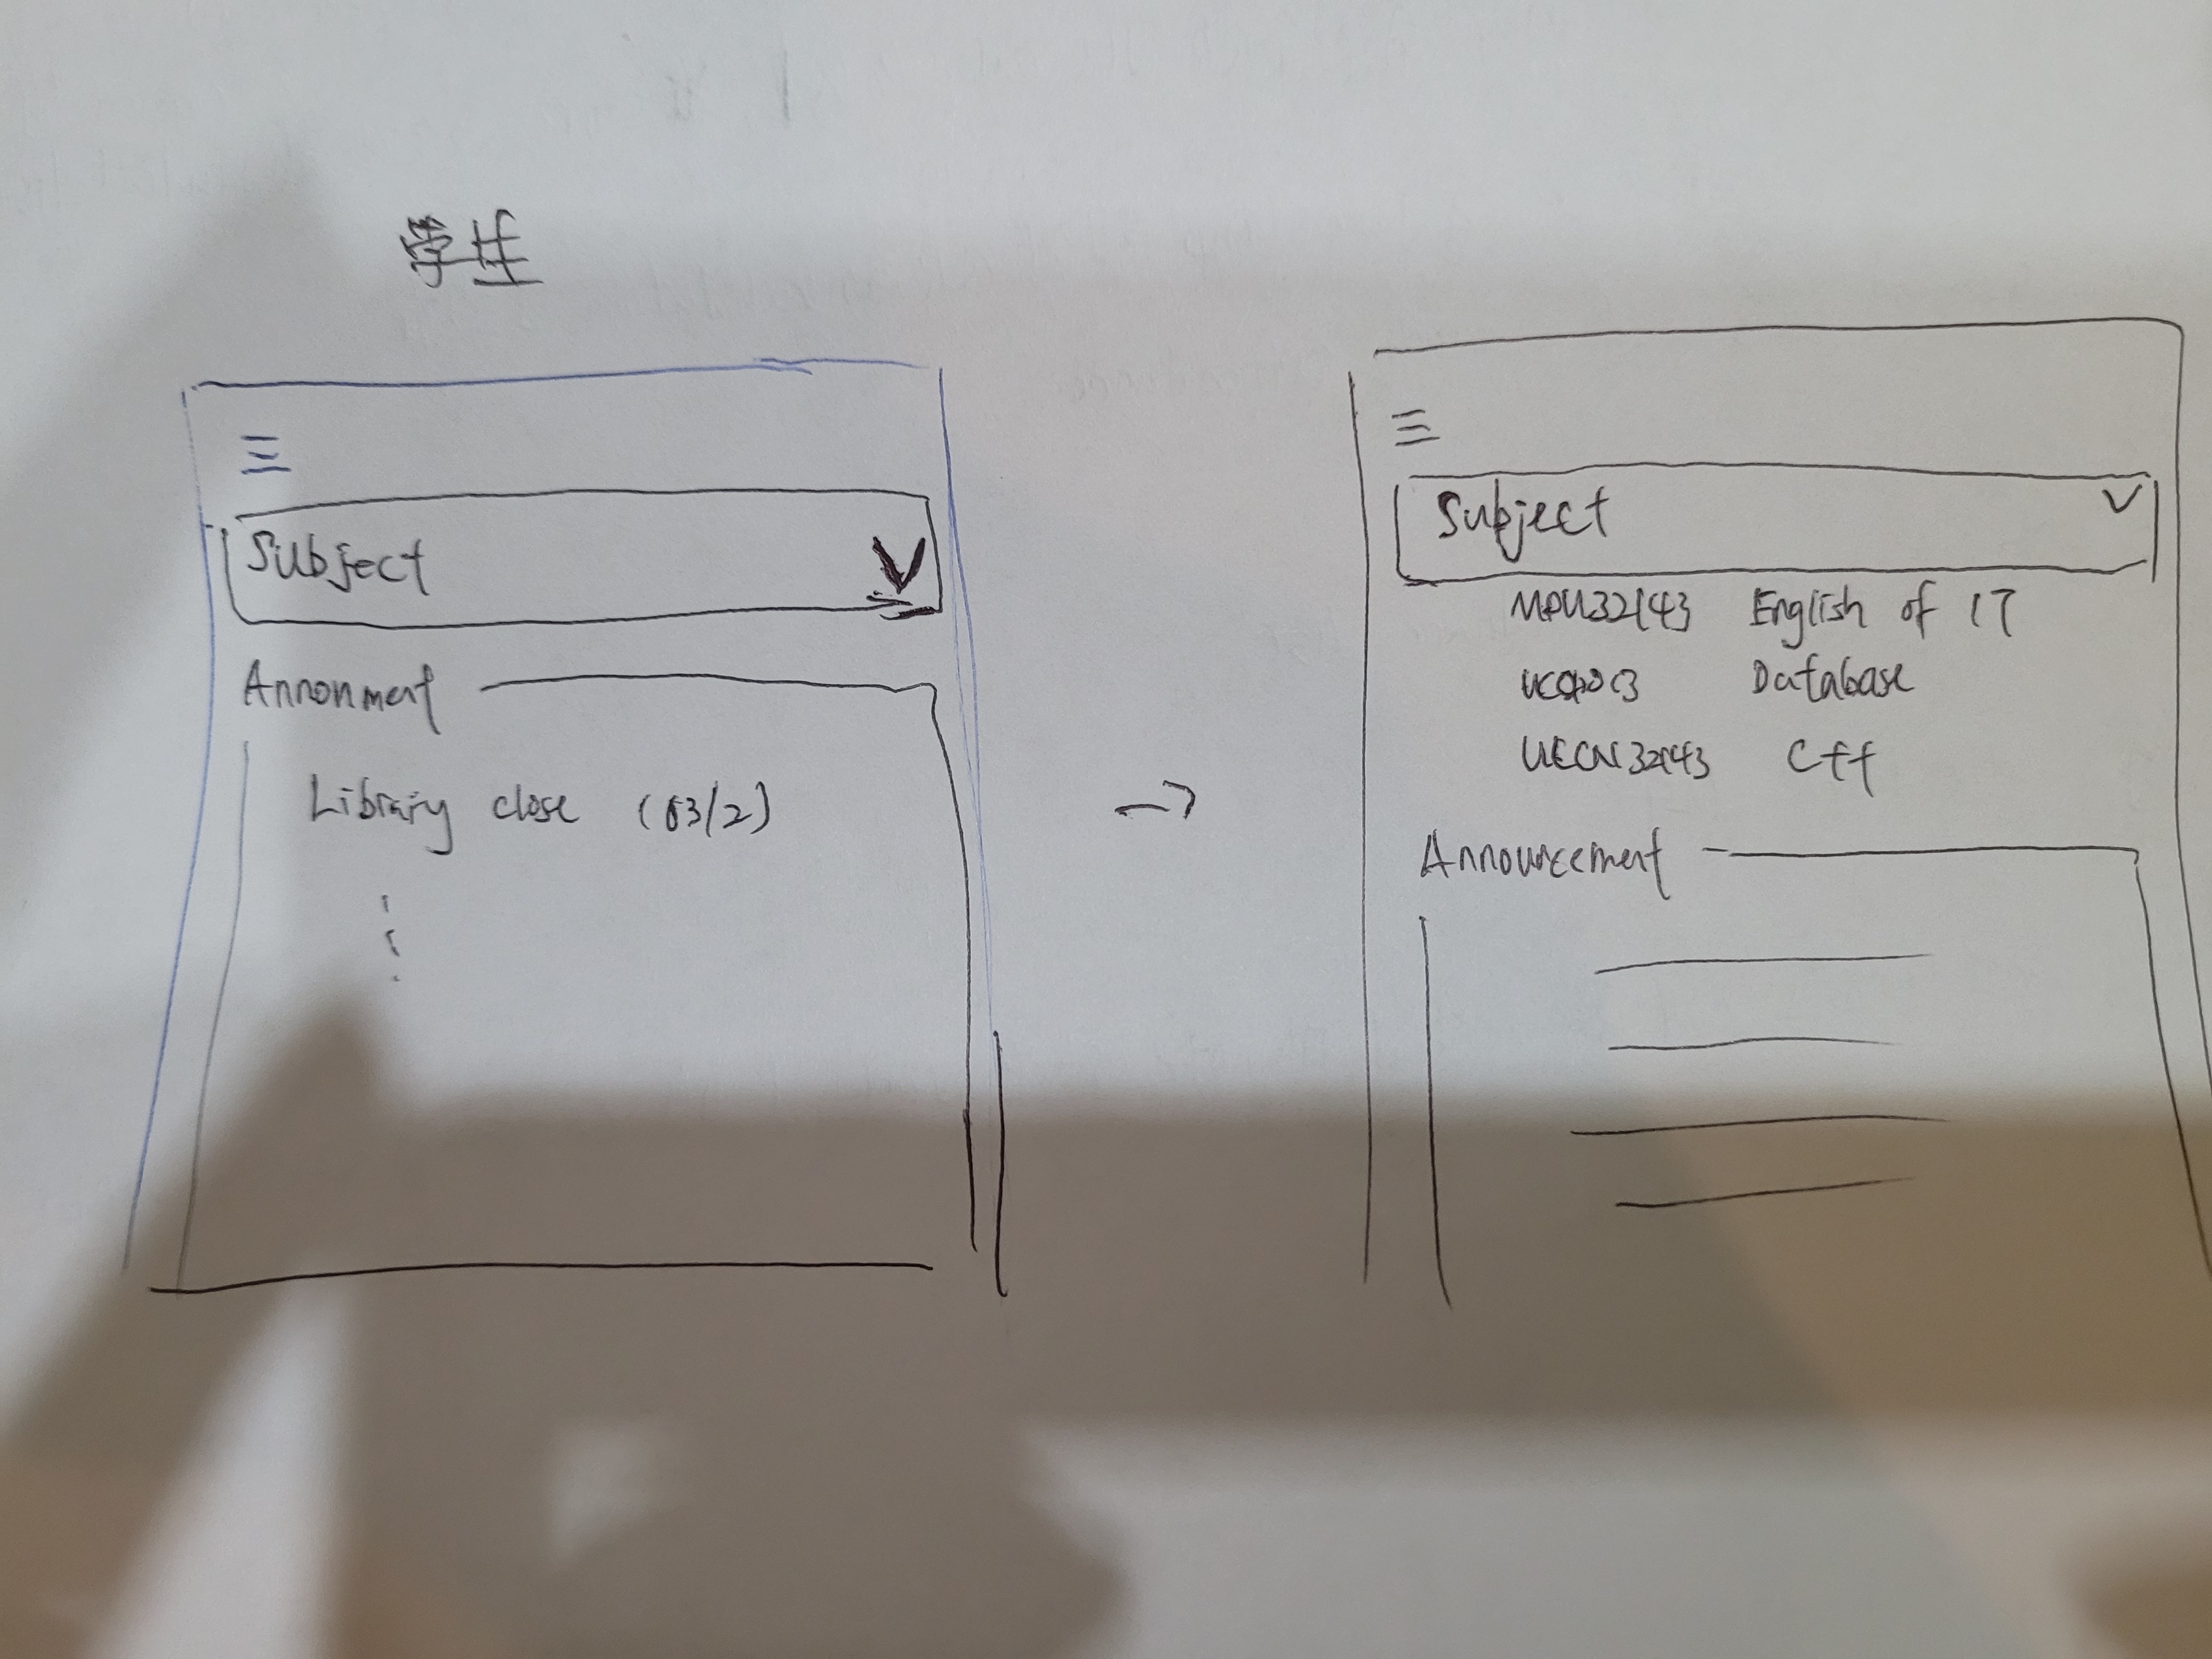 学生
Subject
Annonment
Library close (03/2)
Subject
MPU32143 English of IT
Database
UECN32143 C++
Announcement